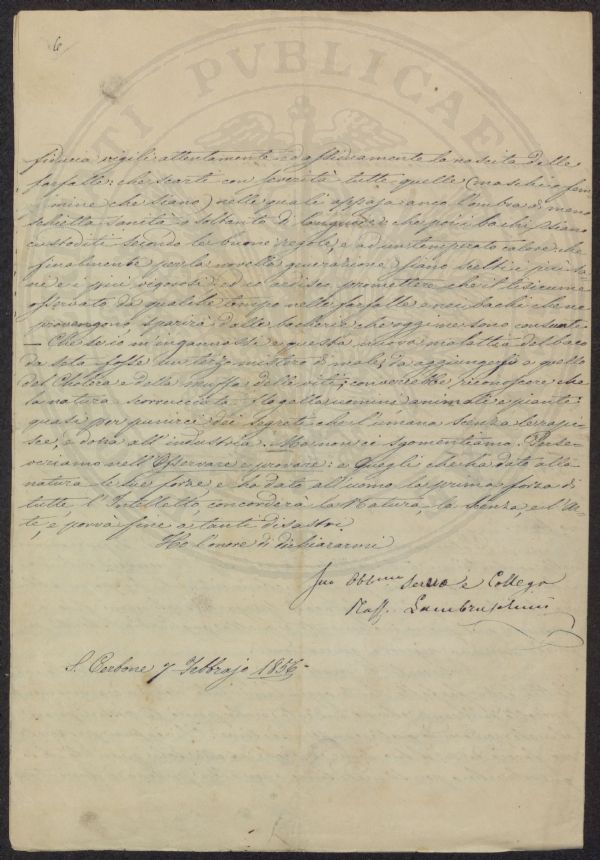 6
TI PVBLICAE
fiducia vigili attentamente ed assiduamente la nascita delle
farfalle: che scarti con severità tutte quelle (maschi o fem
mine che siano) nelle quali apparisca anco l'ombra di meno
schietta sanità o soltanto di languore: che poi i bachi siano
custoditi secondo le buone regole, e ad un temperato calore: che
finalmente per la novella generazione siano scelti i più sa
ni e i più vigorosi: ed io ardisco promettere che il
osservato da qualche tempo nelle farfalle e nei bachi che ne
provengono, sparirà dalle bacherie che oggi ne sono
— Che se io m'ingannassi e questa nuova malattia del baco
da seta fosse un terzo mistero di male, da aggiungersi a quello
del Cholera e della muffa delle viti; converrebbe riconoscere che
la natura scorrucciata flagella uomini animali e piante:
quasi per punirci dei segreti che l'umana scienza le rapi
sce, e dona all'industria. Ma non ci sgomentiamo. Perse
veriamo nell'Osservare e provare: e Quegli che ha dato alla
natura le sue forze e ha dato all'uomo la prima forza di
tutte l'Intelletto, concorderà la Natura, la Scienza, e l'Ar
te, e porrà fine a tanti disastri.
Ho l'onore di dichiararmi
Suo Obbmo servo e Collega
Raff. Lambruschini
S. Cerbone 7 Febbrajo 1856